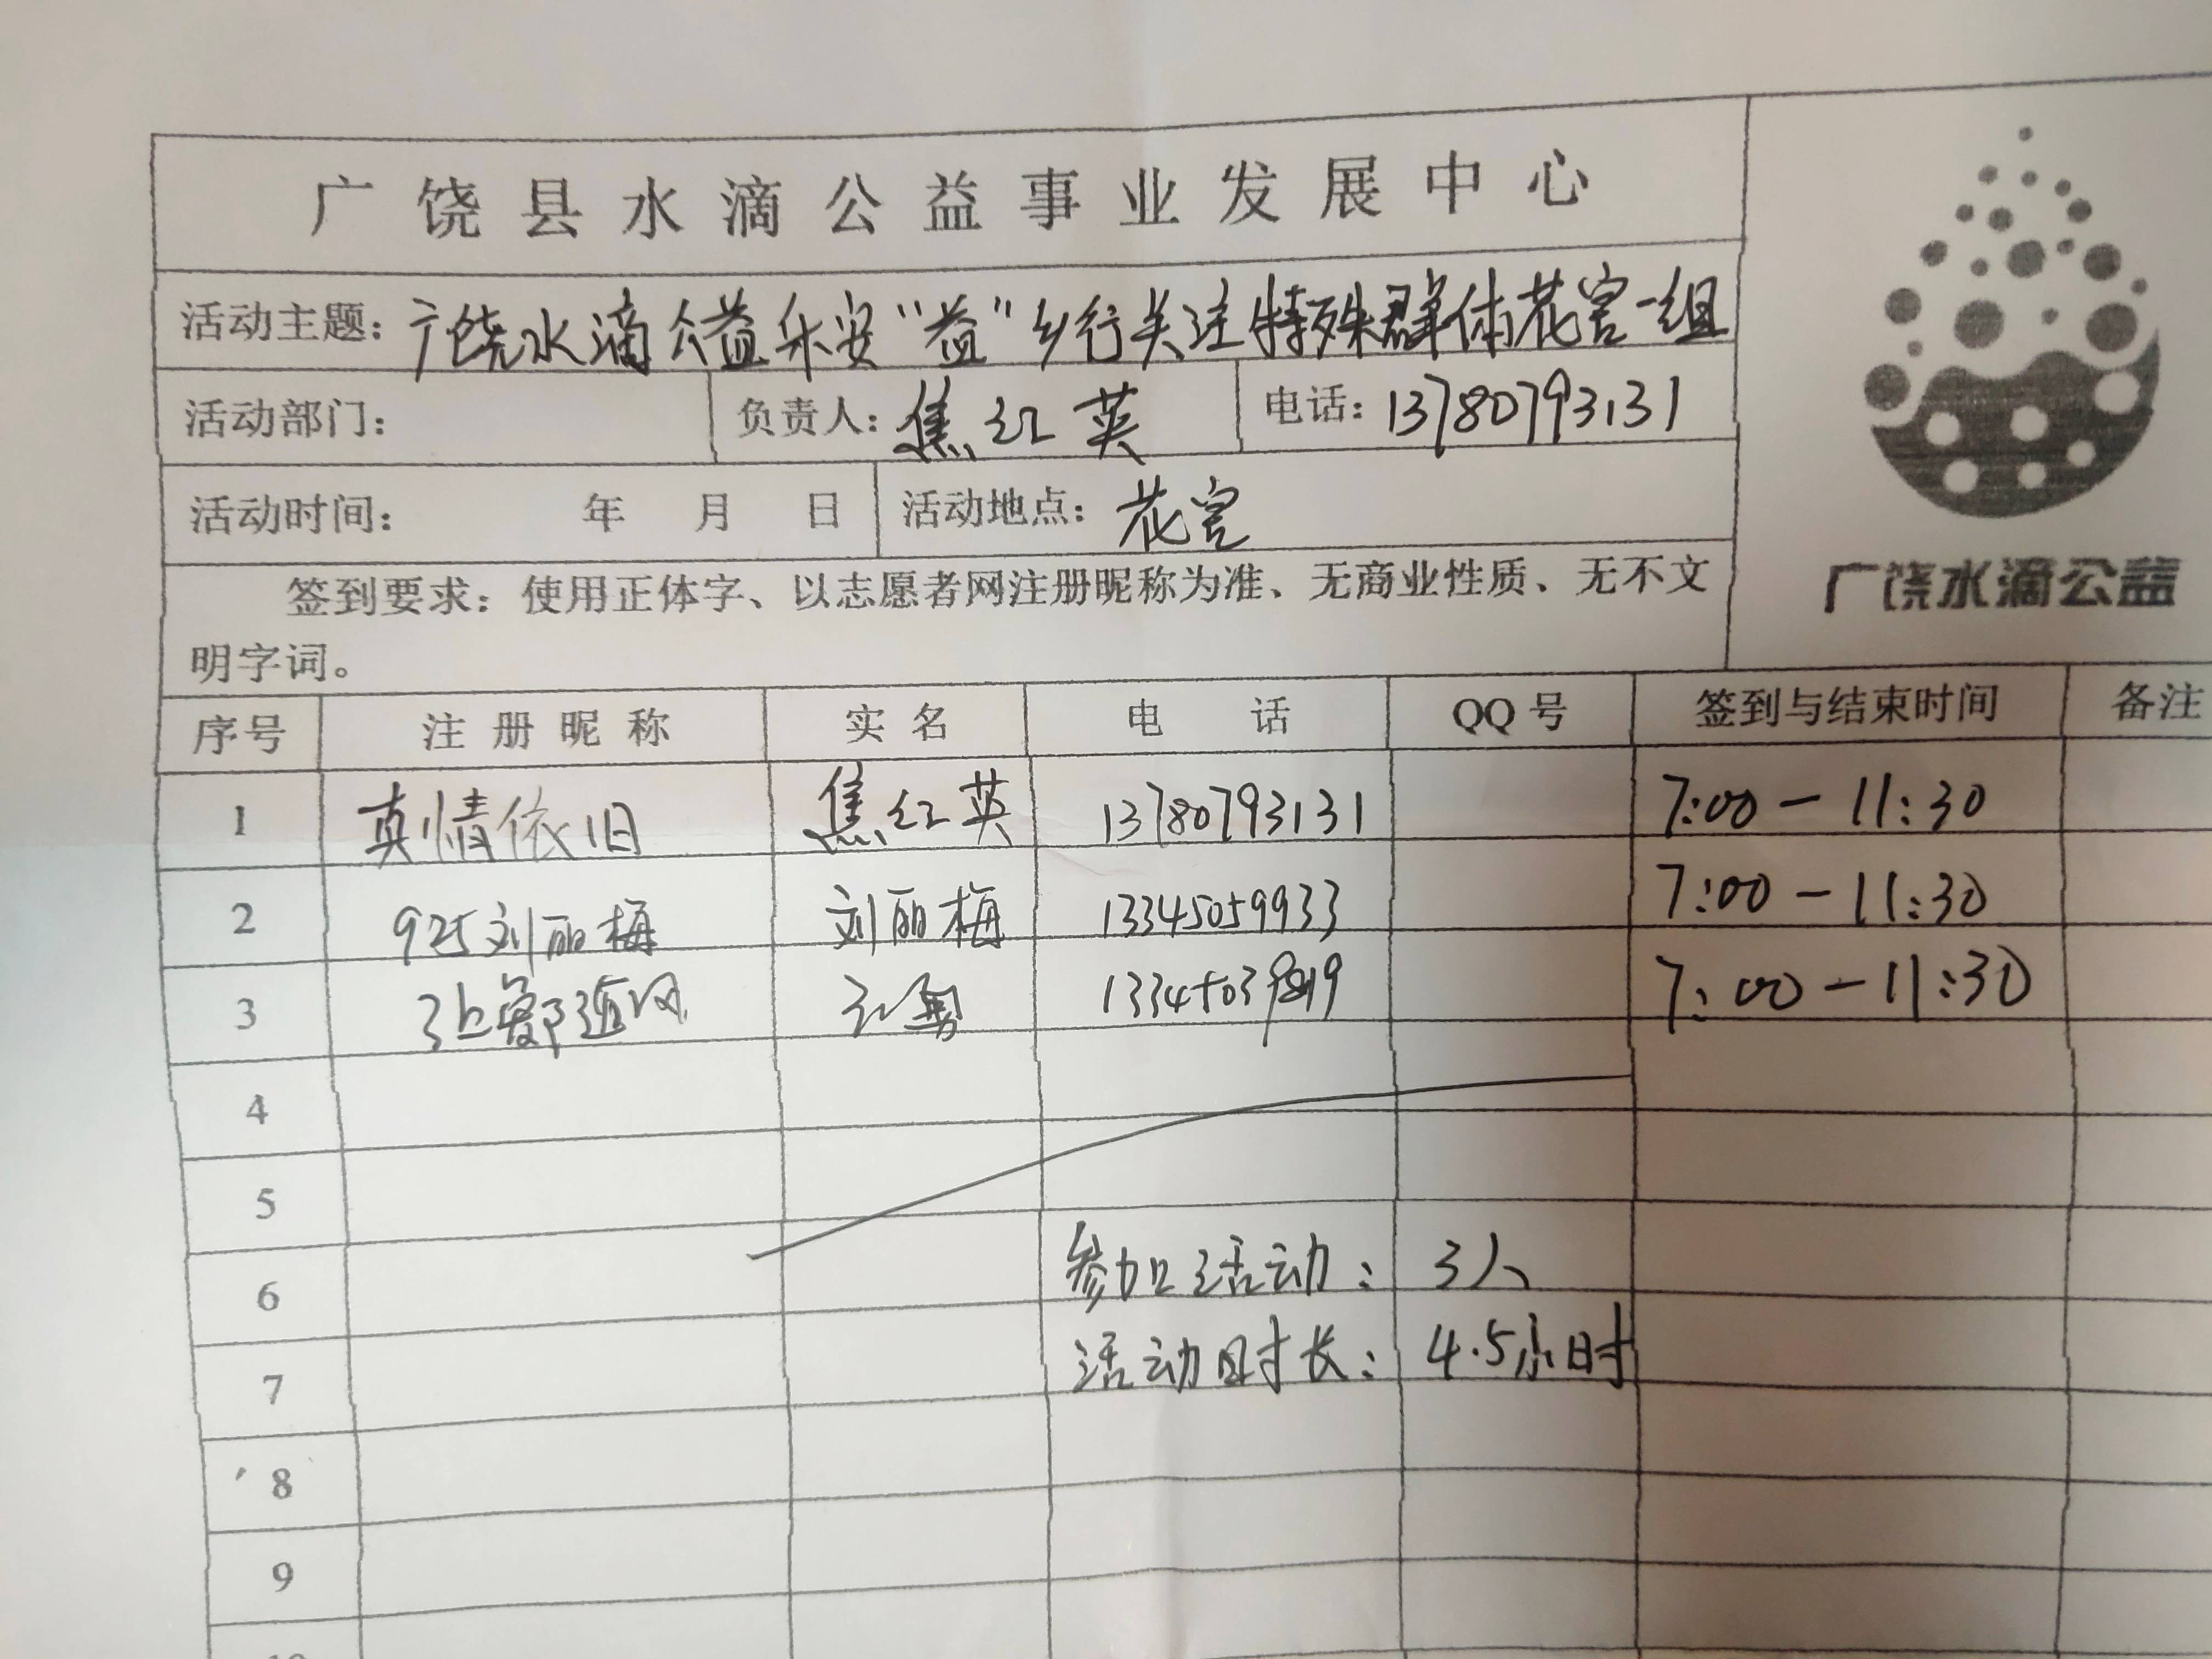 广饶县水滴公益事业发展中心
活动主题：广饶水滴公益乐安“益”乡行关注特殊群体花官一组
活动部门： 负责人：焦红英 电话：13780793131
活动时间： 年 月 日 活动地点：花官
签到要求：使用正体字、以志愿者网注册昵称为准、无商业性质、无不文
明字词。
广饶水滴公益
序号 注册昵称 实名 电话 QQ号 签到与结束时间 备注
1 真情依旧 焦红英 13780793131 7:00-11:30
2 925刘丽梅 刘丽梅 13345059933 7:00-11:30
3 7:00-11:30
4
5
6 参加活动： 3人
7 活动时长： 4.5小时
8
9